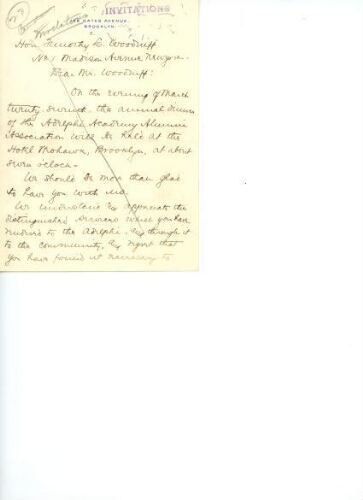 INVITATIONS
Invitation
GATES AVENUE,
BROOKLYN.
Hon. Timothy L. Woodruff
No 1 Madison Avenue New York.
Dear Mr. Woodruff:
On the evening of March
twenty-second, the annual dinner
of the Adelphi Academy Alumni
Association will be held at the
Hotel Mohawk, Brooklyn, at about
seven o'clock.
We should be more than glad
to have you with us.
We understand & appreciate the
distinguished services which you have
rendered to the Adelphi, & through it
to the community, & regret that
you have found it necessary to